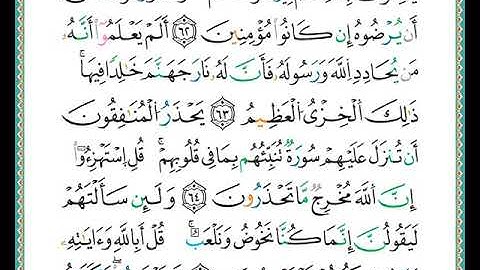 أَن يُرْضُوهُ إِن كَانُوا۟ مُؤْمِنِينَ ٦٢ أَلَمْ يَعْلَمُوٓا۟ أَنَّهُۥ
مَن يُحَادِدِ ٱللَّهَ وَرَسُولَهُۥ فَأَنَّ لَهُۥ نَارَ جَهَنَّمَ خَٰلِدًا فِيهَا ۚ
ذَٰلِكَ ٱلْخِزْىُ ٱلْعَظِيمُ ٦٣ يَحْذَرُ ٱلْمُنَٰفِقُونَ
أَن تُنَزَّلَ عَلَيْهِمْ سُورَةٌ تُنَبِّئُهُم بِمَا فِى قُلُوبِهِمْ ۚ قُلِ ٱسْتَهْزِءُوٓا۟
إِنَّ ٱللَّهَ مُخْرِجٌ مَّا تَحْذَرُونَ ٦٤ وَلَئِن سَأَلْتَهُمْ
لَيَقُولُنَّ إِنَّمَا كُنَّا نَخُوضُ وَنَلْعَبُ ۚ قُلْ أَبِٱللَّهِ وَءَايَٰتِهِۦ